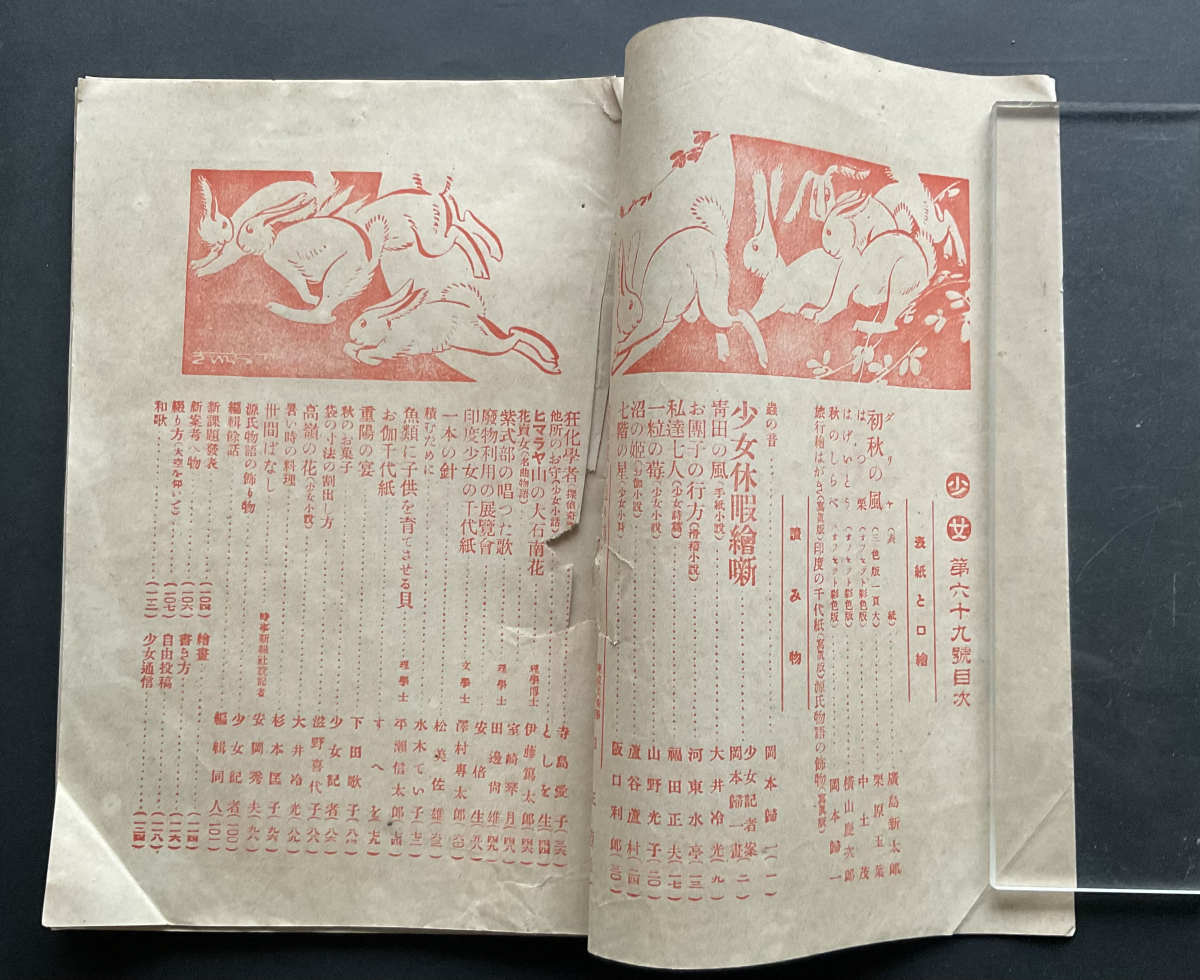 少女 第六十九號目次
表紙と口繪
ダリヤ(表紙) 廣島新太郎
初秋の風(三色版一頁大) 栗原玉葉
はつ栗(オフセット影色版) 中土茂
はげいとう(オフセット影色版) 横山慶次郎
秋のしらべ(オフセット影色版) 岡本歸一
旅行繪はがき(寫眞版)印度の千代紙(寫眞版)源氏物語の飾物(寫眞版)
讀み物
蟲の音 岡本歸一(一)
少女休暇繪噺 少女記者案 岡本歸一畫(二)
靑田の風(手紙小說) 大井冷光(九)
お團子の行方(滑稽小說) 河東水亭(一三)
私達七人(少女詩篇) 福田正夫(一七)
一粒の莓(少女小說) 山野光子(二〇)
沼の姬(お伽小說) 蘆谷蘆村(二四)
七階の星(少女小說) 阪口利郎(三〇)
狂化學者 寺島愛子(三六)
他所のお守(少女小話) としを生(四四)
ヒマラヤ山の大石南花 理學博士 伊藤篤太郎(四六)
花賣女(名曲物語) 室崎琴月(四八)
紫式部の唱つた歌 理學士 田邊尙雄(四九)
廢物利用の展覽會 安倍生(五八)
印度少女の千代紙 文學士 澤村專太郎(六〇)
一本の針 松美佐雄(六三)
積むために 水木てい子(七三)
魚類に子供を育てさせる貝 理學士 平瀨信太郎(七四)
お伽千代紙 すへを(七九)
重陽の宴 下田歌子(八四)
秋のお菓子 少女記者(八六)
袋の寸法の割出し方 滋野喜代子(八八)
高嶺の花(少女小說) 大井冷光(八九)
暑い時の料理 杉本匡子(九六)
世間ばなし 時事新報社說記者 安岡秀夫(九八)
源氏物語の飾り物 少女記者(一〇〇)
編輯餘話 編輯同人(一〇一)
新課題發表(一〇四) 繪畫(一一四)
新案考へ物(一〇六) 書き方(一一六)
綴り方(大空を仰いで)(一〇七) 自由投稿(一一八)
和歌(一一二) 少女通信(一二四)